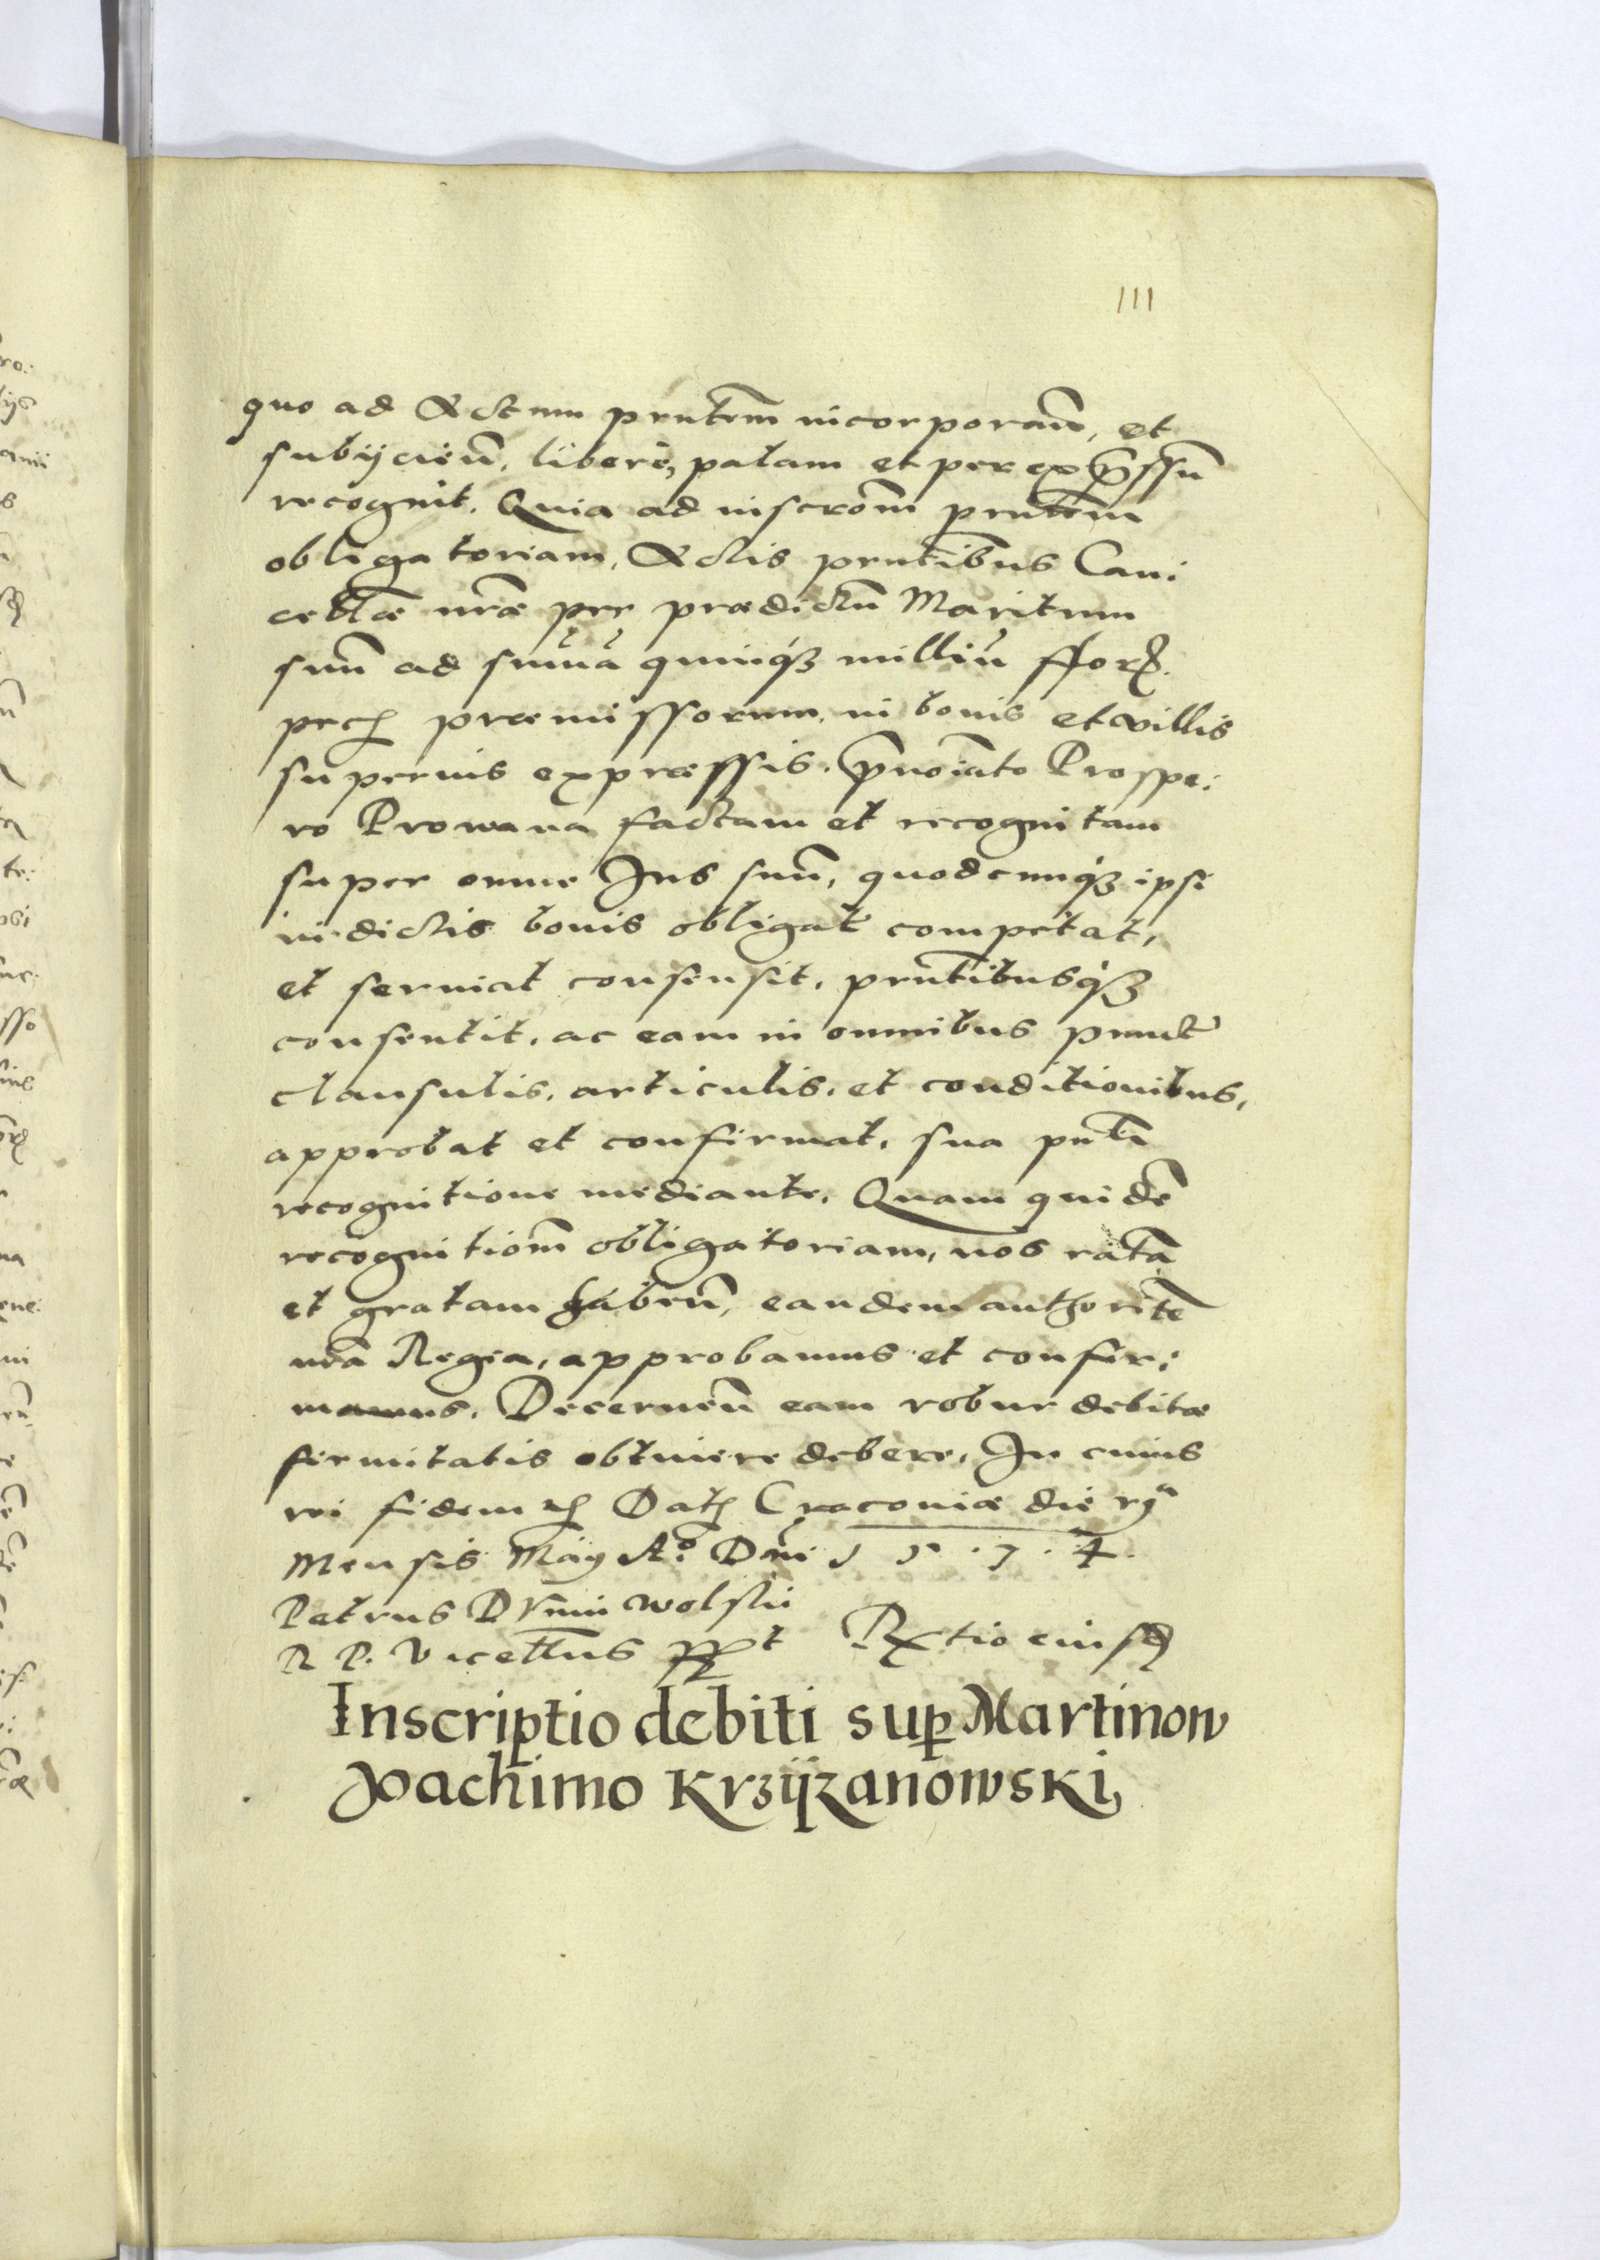 111
quo ad Actum pñtem incorporañ, et
subijcieñ, liberè, palam et per expssũ
recognit. Quia ad inscrõm pñtem
obligatoriam, Actis pñtibus Can:
cellæ nrãe per prædictũ Maritum
suũ ad sumã quinq3 milliũ fflor.
pec praemissorum, in bonis et villis
superius expressis, pñoiato Prospe:
ro Prowana factam et recognitam
super omne Jus suũ, quodcunq3 ipsi
in dictis bonis obligat competat,
et seruiat consensit, pñtibusq3
consentit, ac eam in omnibus punct
clausulis, articulis, et conditionibus,
approbat et confirmat, sua pñti
recognitione mediante. Quam quidẽ
recognitiom̃ obligatoriam, nos ratã
et gratam habeñ, eandem authoritẽ
nrã Regia, approbamus et confir:
mamus. Decerneñ eam robur debitæ
firmitatis obtinere debere, In cuius
rei fidem Dat Cracoviæ die
Mensis Maij A.º Dñi 1 5 . 7 . 4.
Petrus Dunin Wolski
R P. Vicecellrius sst Rxtio eiusd
Inscriptio debiti sup Martinow
Joachimo Krzijzanowski